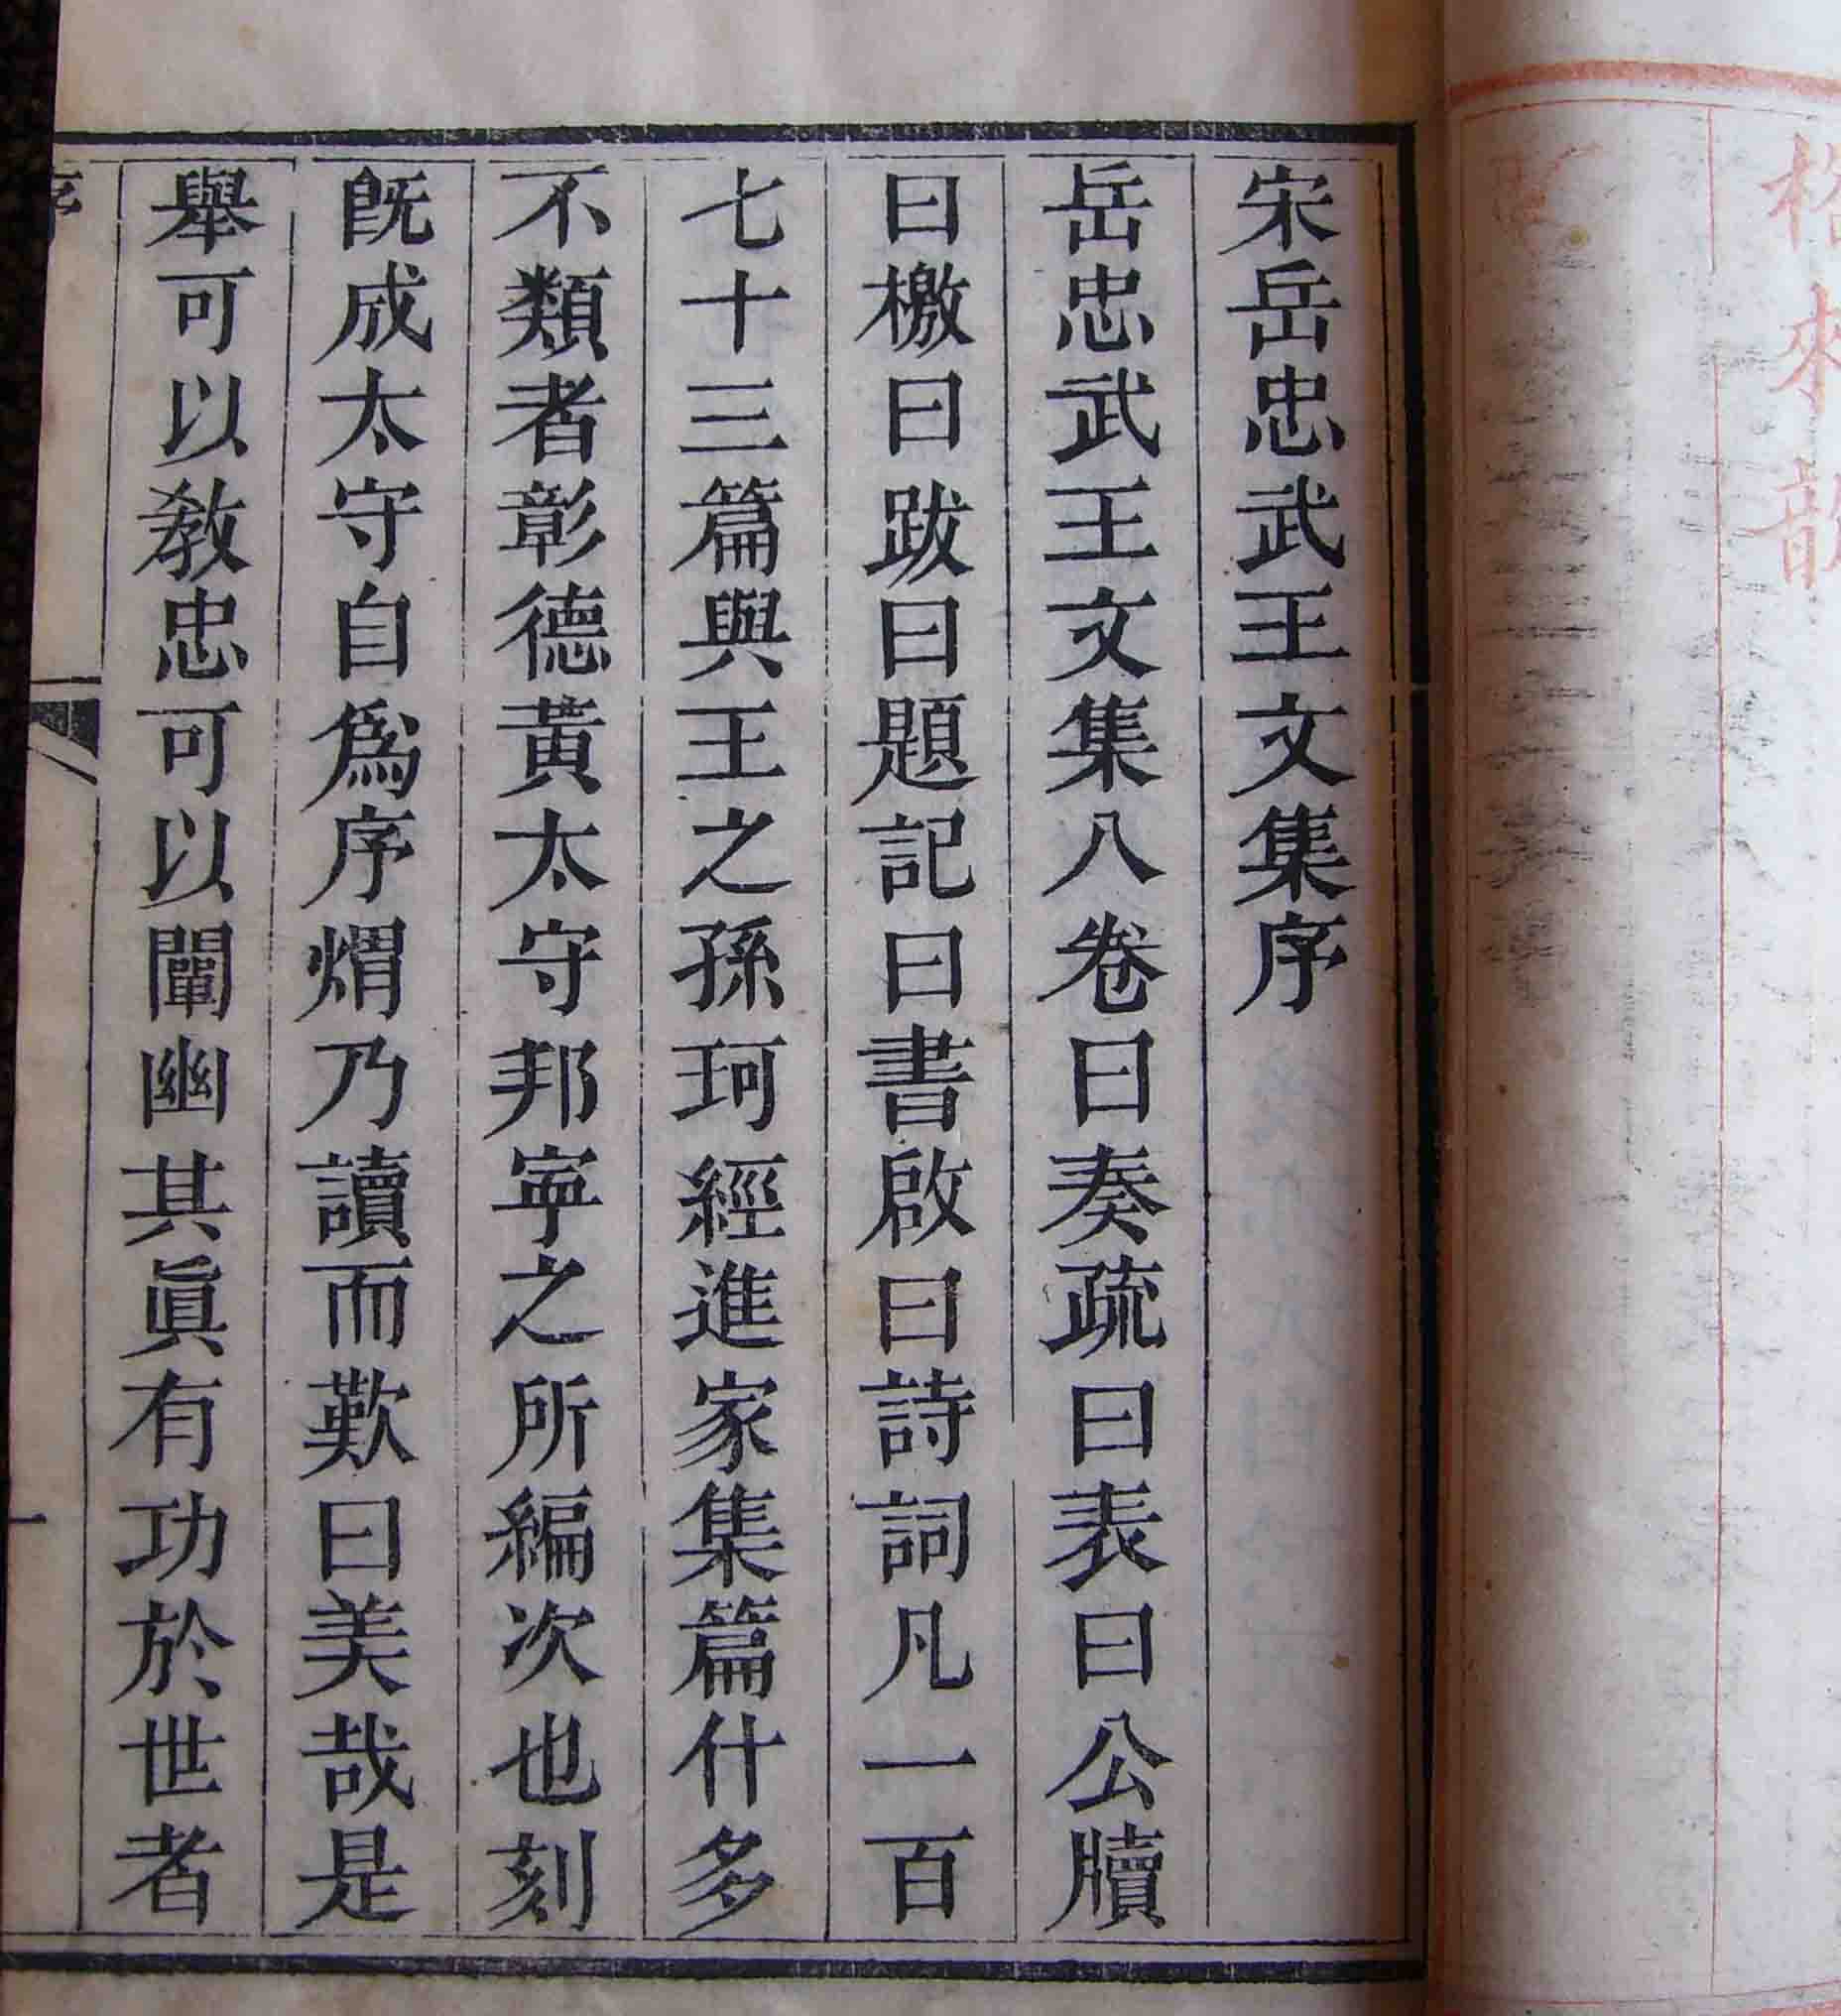 宋岳忠武王文集序
岳忠武王文集八卷曰奏疏曰表曰公牘
曰檄曰跋曰題記曰書啟曰詩詞凡一百
七十三篇與王之孫珂經進家集篇什多
不類者彰德黃太守邦寕之所編次也刻
旣成太守自爲序煟乃讀而歎曰美哉是
舉可以敎忠可以闡幽其眞有功於世者
序
一